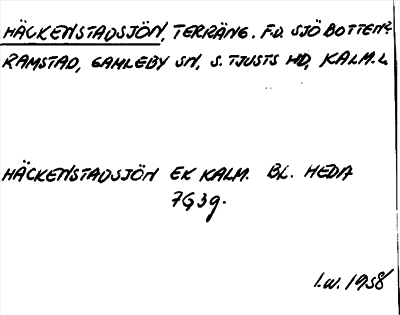 HÄCKENSTADSJÖN, TERRÄNG. F.D. SJÖBOTTEN?
RAMSTAD, GAMLEBY SN, S. TJUSTS HD, KALM. L
HÄCKENSTADSJÖN EK KALM. BL. HEDA
7G3g.
I.W. 1958